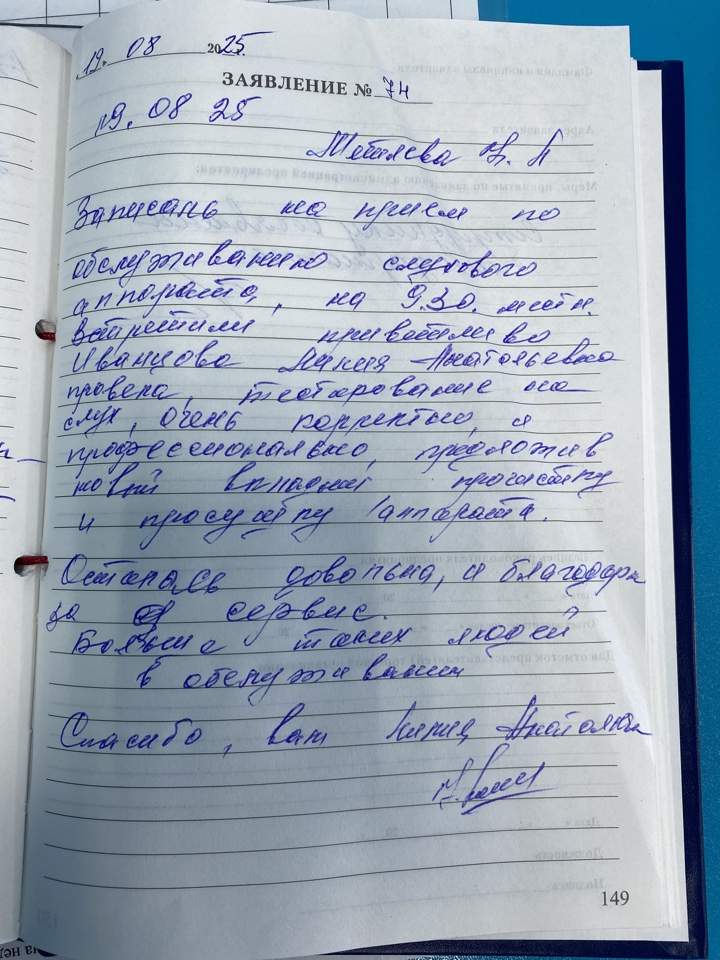 19. 08 2025.
ЗАЯВЛЕНИЕ № 74
19. 08 25
Н. П
Записаль на прием по
обслуживанию слухового
аппората, на 9.30. мстн.
Встретили приветливо
Иванцова Лилия Анатольевна
провела, тестирование на
слух, очень корректно, и
профессионально, предложив
новый вкладыш прочистку
и просушку аппората.
Осталась довольна, и благодарн
за сервис.
Больше таких людей
в обслуживании
Спасибо, вам Лилия Анатольевн
149